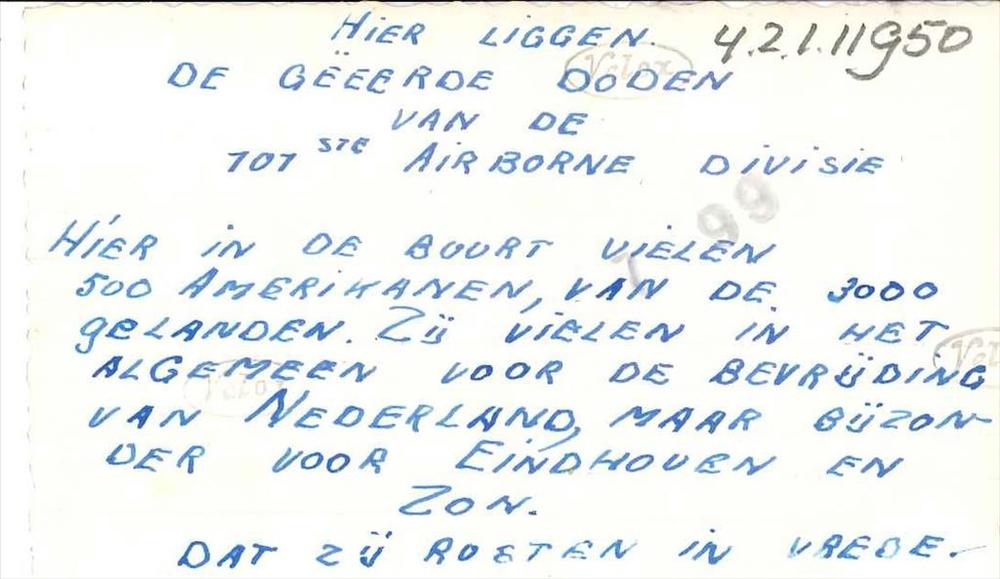 HIER LIGGEN. 4.2.1.11950
DE GEËERDE DODEN
VAN DE
101 STE AIRBORNE DIVISIE
99
HIER IN DE BUURT VIELEN
500 AMERIKANEN, VAN DE 3000
GELANDEN. ZIJ VIELEN IN HET
ALGEMEEN VOOR DE BEVRIJDING
VAN NEDERLAND, MAAR BIJZON-
DER VOOR EINDHOVEN EN
ZON.
DAT ZIJ RUSTEN IN VREDE.
Velox
Velox
Velox